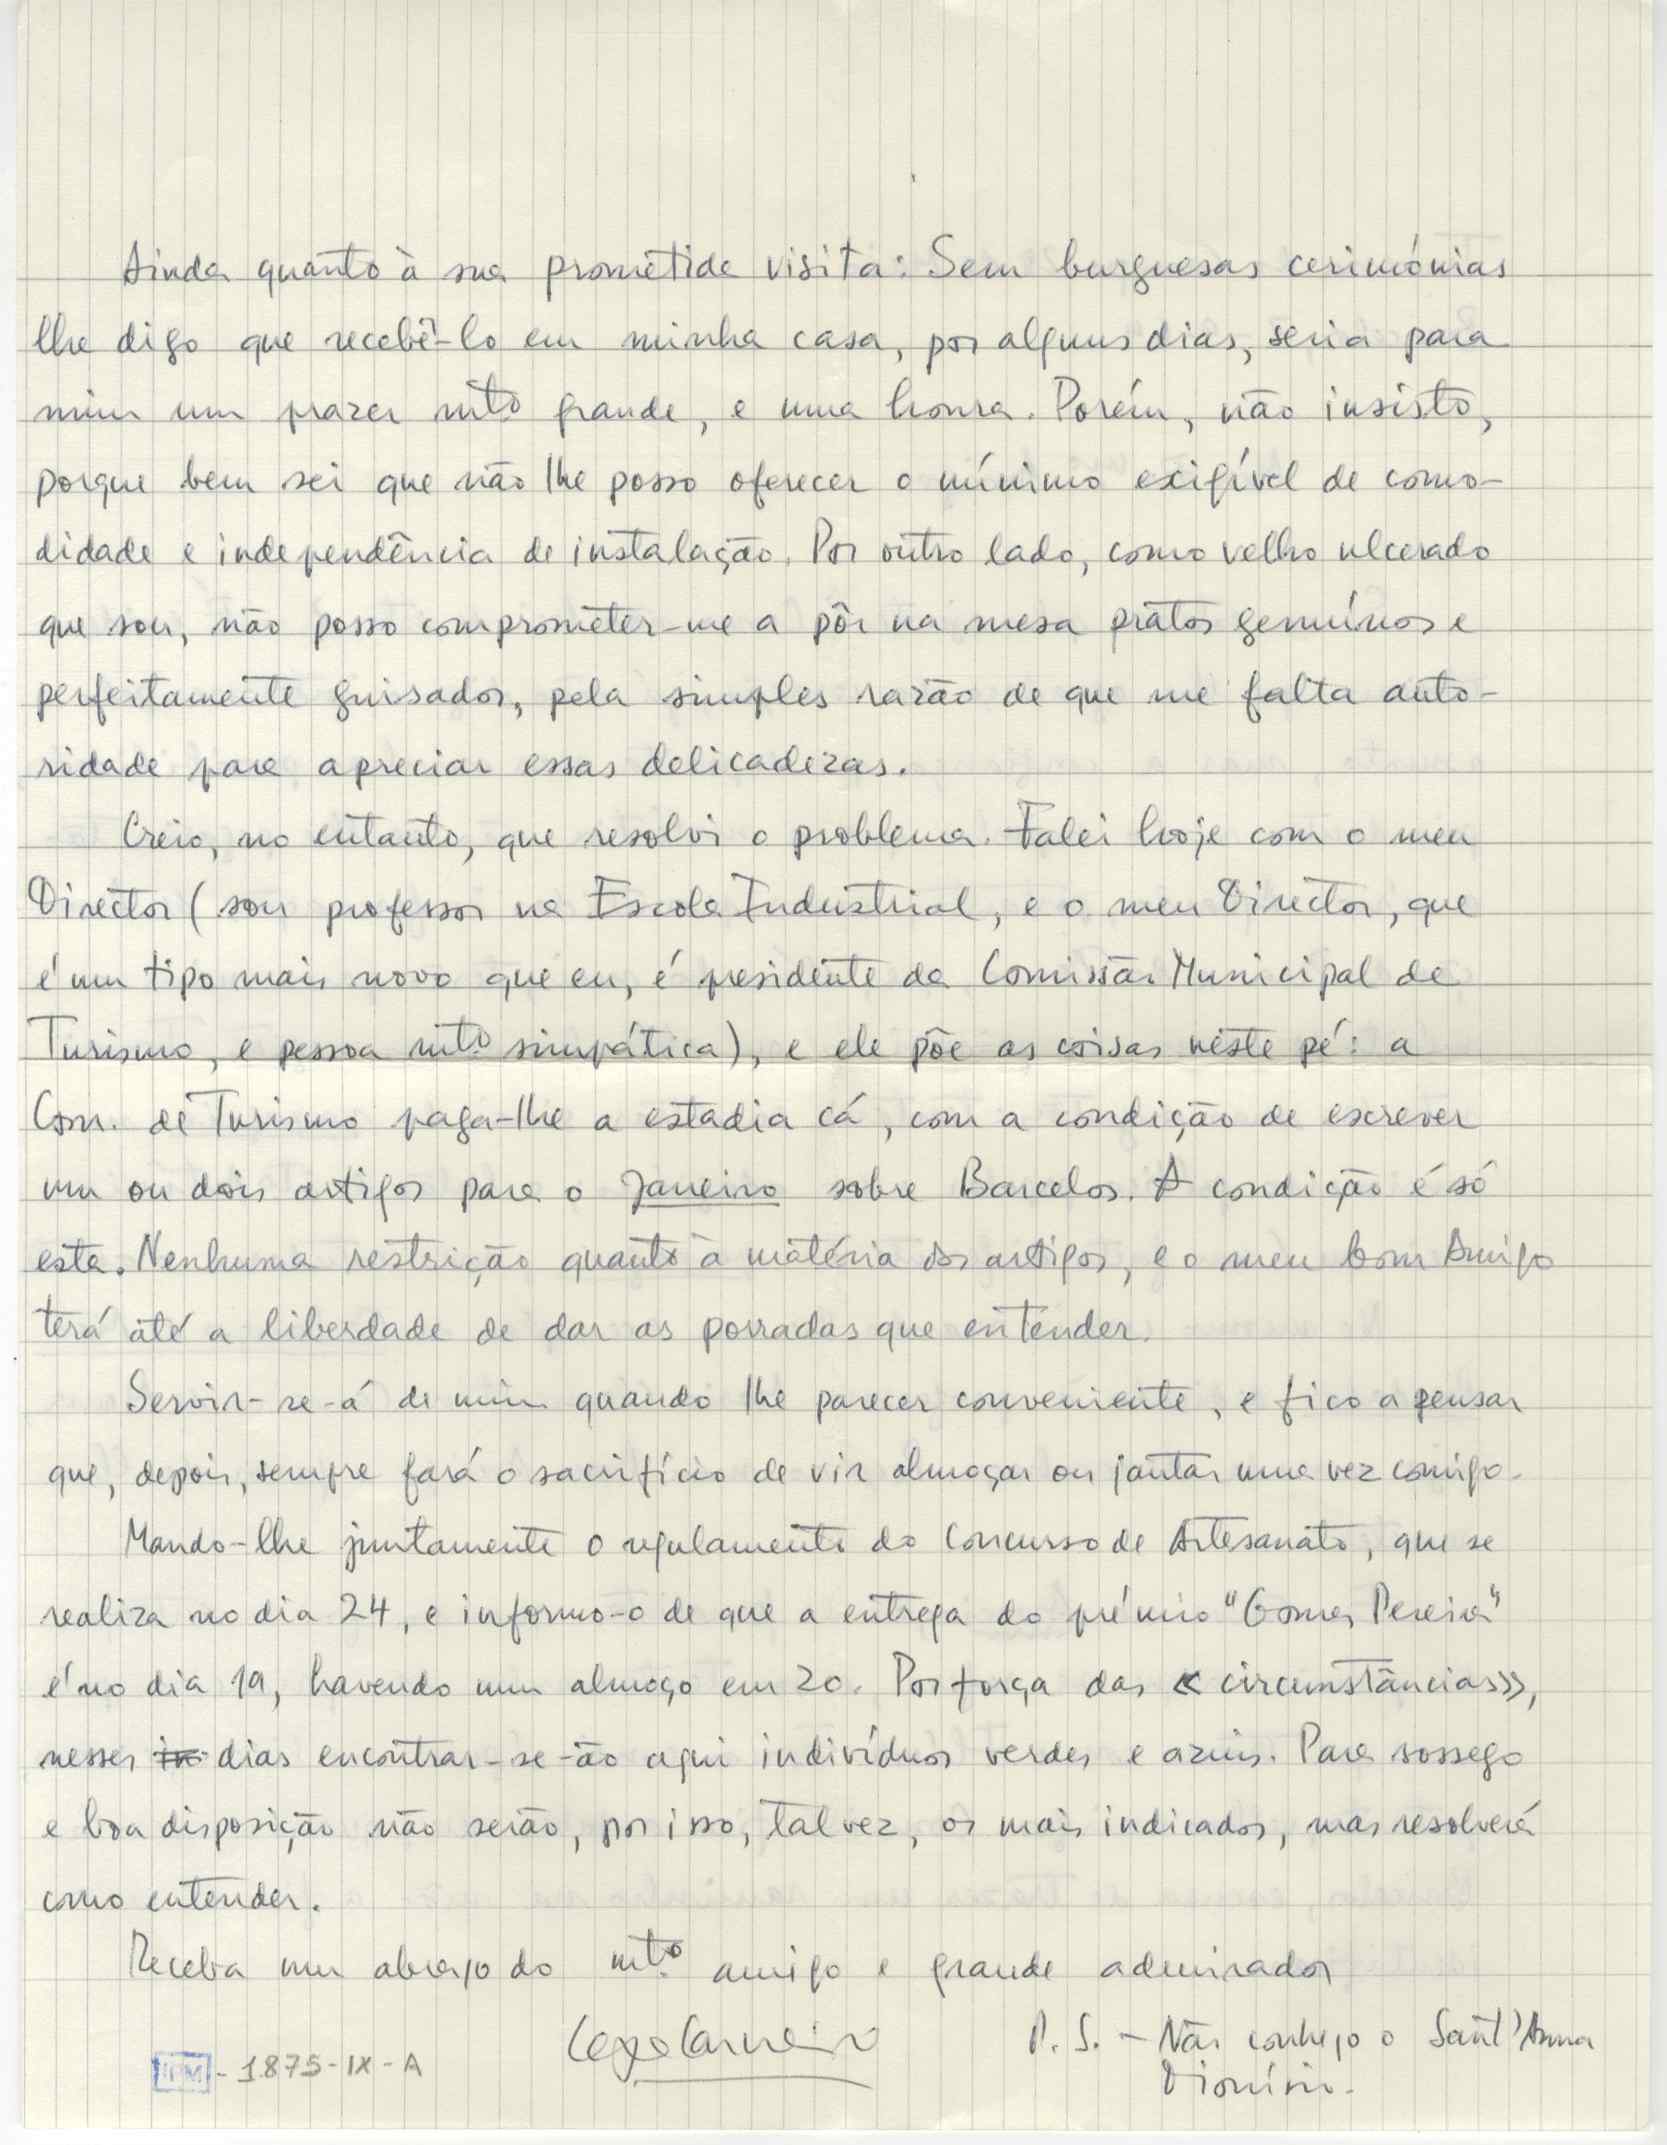 Ainda quanto à sua prometida visita: Sem burguesas cerimónias
lhe digo que recebê-lo em minha casa, por alguns dias, seria para
mim um prazer mtº grande, e uma honra. Porém, não insisto,
porque bem sei que não lhe posso oferecer o mínimo exigível de como-
didade e independência de instalação. Por outro lado, como velho ulcerado
que sou, não posso comprometer-me a pôr na mesa pratos genuínos e
perfeitamente guisados, pela simples razão de que me falta auto-
ridade para apreciar essas delicadezas.
Creio, no entanto, que resolvi o problema. Falei hoje com o meu
Director (sou professor na Escola Industrial, e o meu Director, que
é um tipo mais novo que eu, é presidente da Comissão Municipal de
Turismo, e pessoa mtº simpática), e ele põe as coisas neste pé: a
Com. de Turismo paga-lhe a estadia cá, com a condição de escrever
um ou dois artigos para o Janeiro sobre Barcelos. A condição é só
esta. Nenhuma restrição quanto à matéria dos artigos, e o meu bom Amigo
terá até a liberdade de dar as porradas que entender.
Servir-se-á de mim quando lhe parecer conveniente, e fico a pensar
que, depois, sempre fará o sacrifício de vir almoçar ou jantar uma vez comigo.
Mando-lhe juntamente o regulamento do Concurso de Artesanato, que se
realiza no dia 24, e informo-o de que a entrega do prémio "Gomes Pereira"
é no dia 19, havendo um almoço em 20. Por força das «circunstâncias»,
nesses dias encontrar-se-ão aqui indivíduos verdes e azuis. Para sossego
e boa disposição não serão, por isso, talvez, os mais indicados, mas resolverá
como entender.
Receba um abraço do mtº amigo e grande admirador
P. S. - Não conheço o Sant'Anna
Dionísio.
- 1875-IX-A